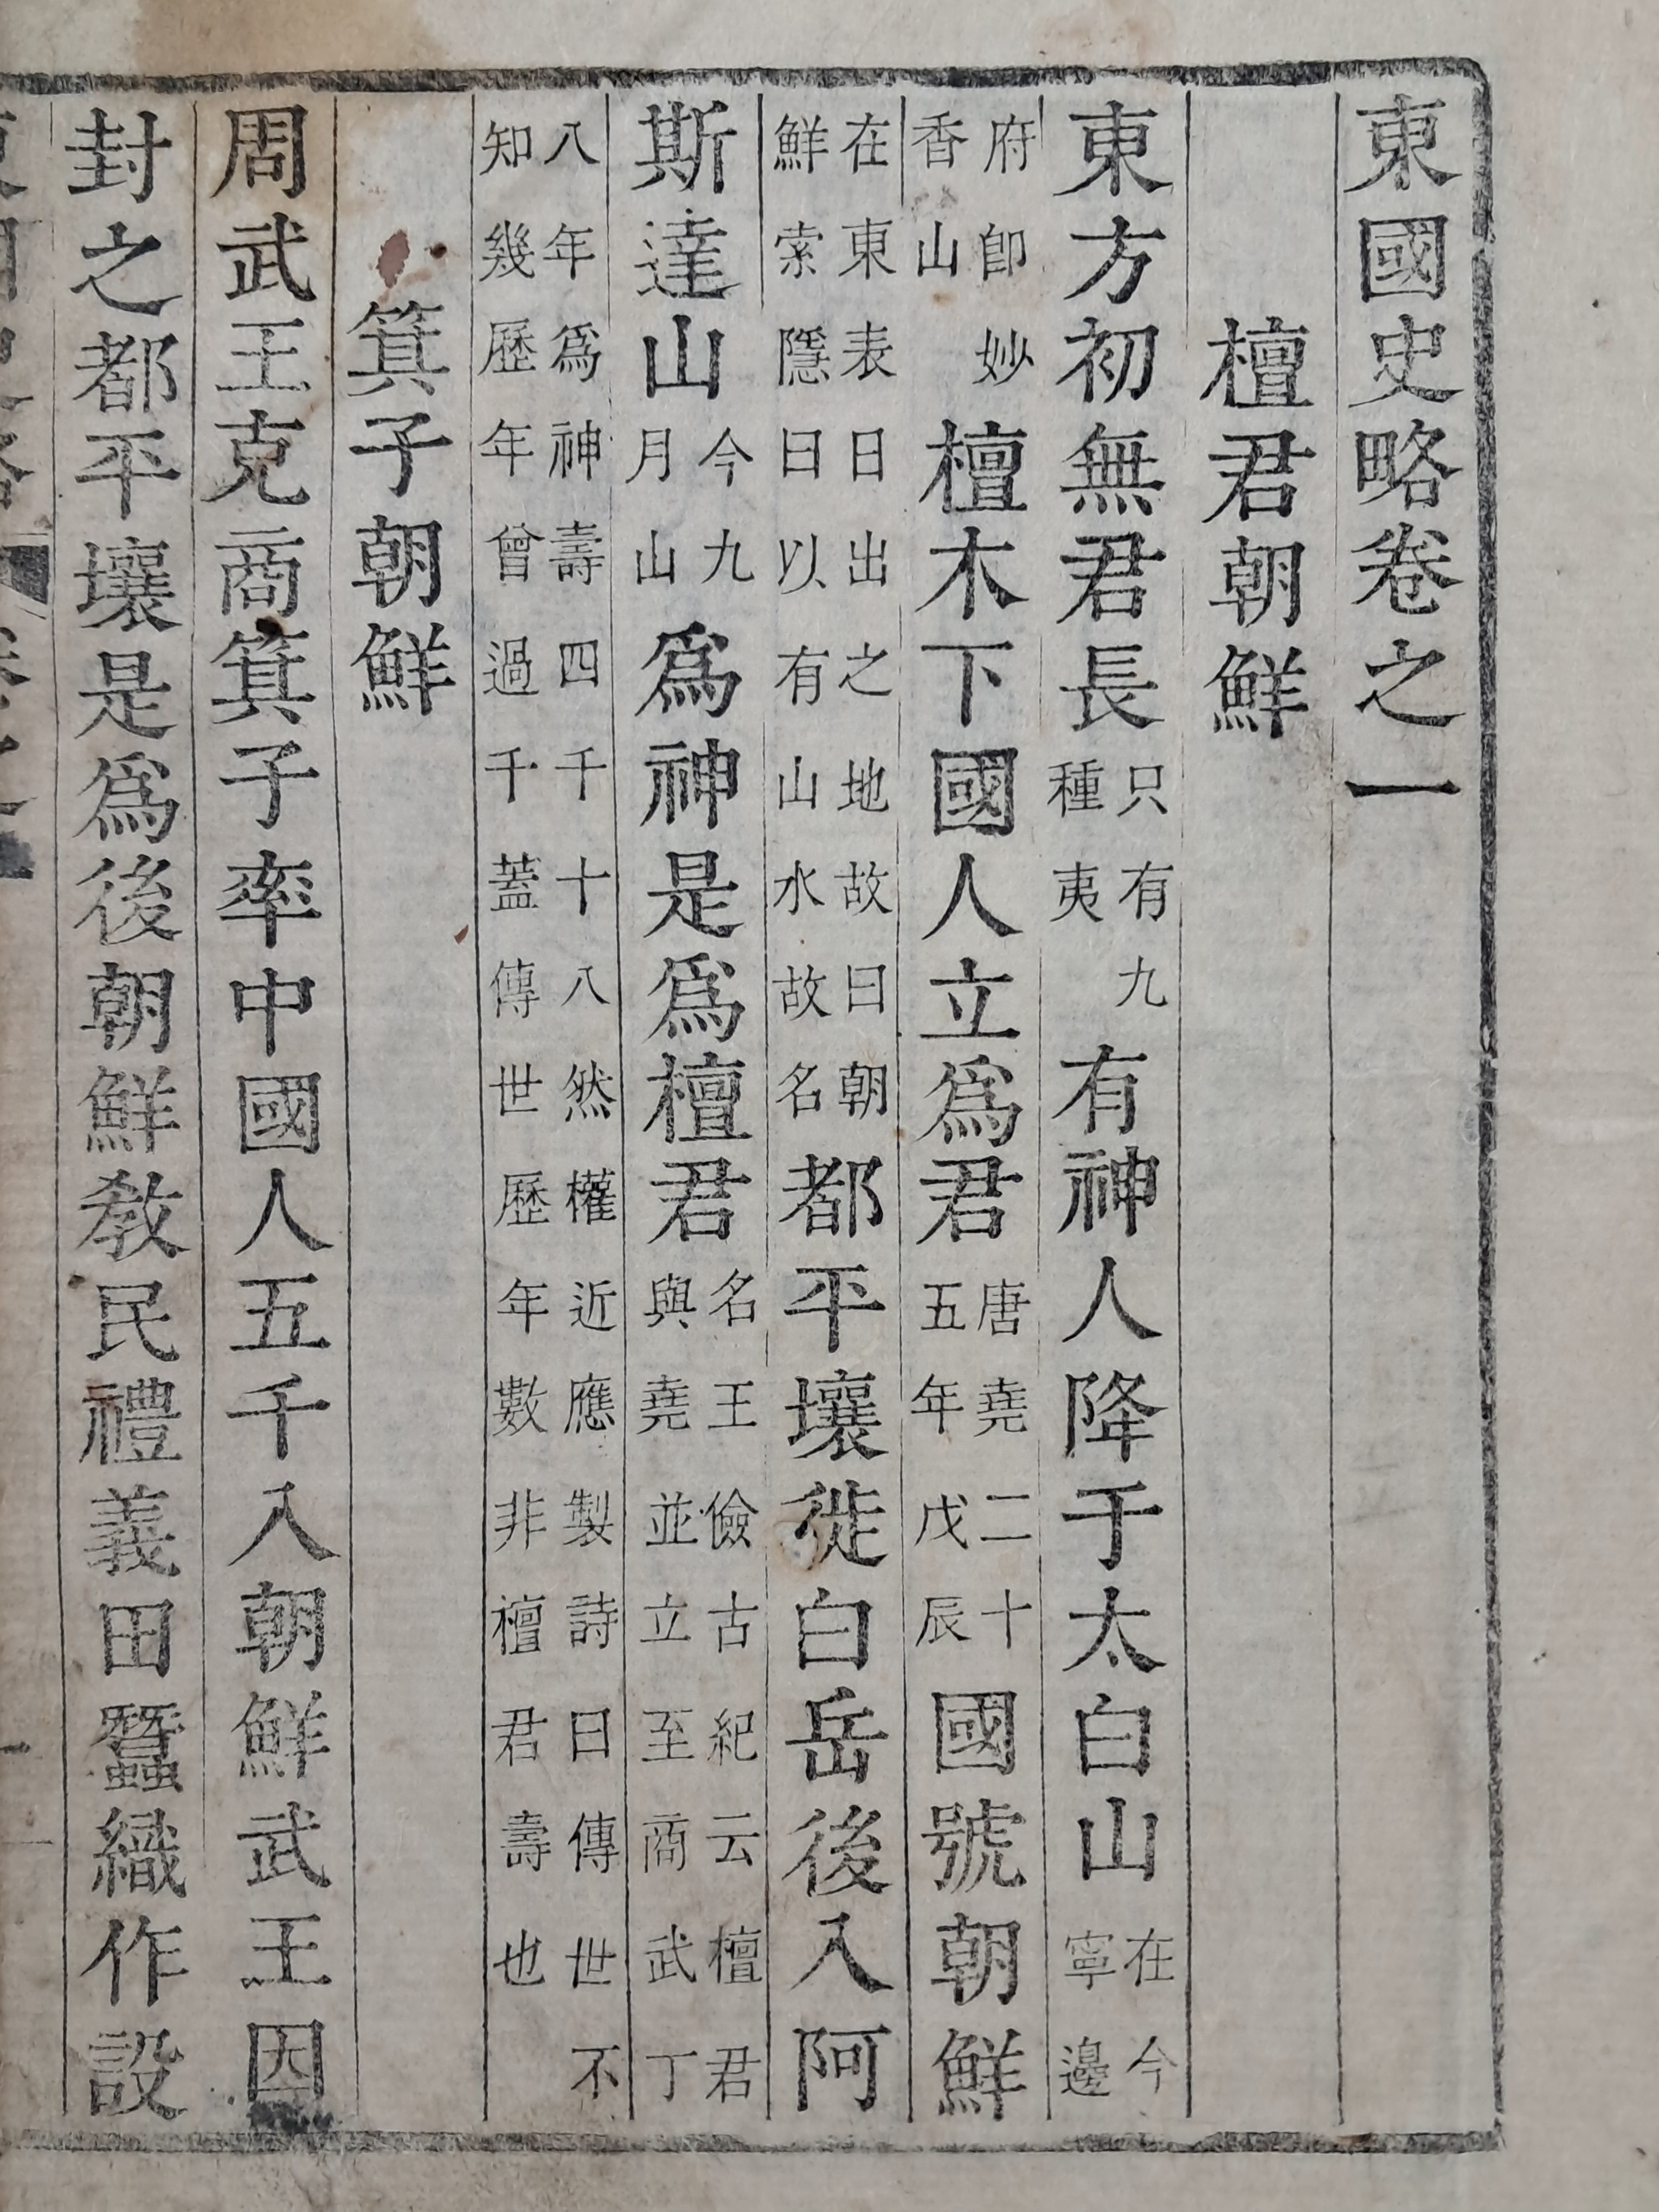 東國史略卷之一
檀君朝鮮
東方初無君長只有九種夷有神人降于太白山在今寧邊
府卽妙香山檀木下國人立爲君唐堯二十五年戊辰國號朝鮮
在東表日出之地故曰朝鮮索隱曰以有山水故名都平壤徙白岳後入阿
斯達山今九月山爲神是爲檀君名王儉古紀云檀君與堯並立至商武丁
八年爲神壽四千十八然權近應製詩曰傳世不知幾歷年曾過千蓋傳世歷年數非檀君壽也
箕子朝鮮
周武王克商箕子率中國人五千入朝鮮武王因
封之都平壤是爲後朝鮮敎民禮義田蠶織作設